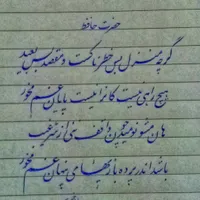 حضرت حافظ
گرچه منزل بس خطرناکست و مقصد بس بعید
هیچ راهی نیست کانرا نیست پایان غم مخور
هان مشو نومید چون واقف نئی از سر غیب
باشد اندر پرده بازیهای پنهان غم مخور